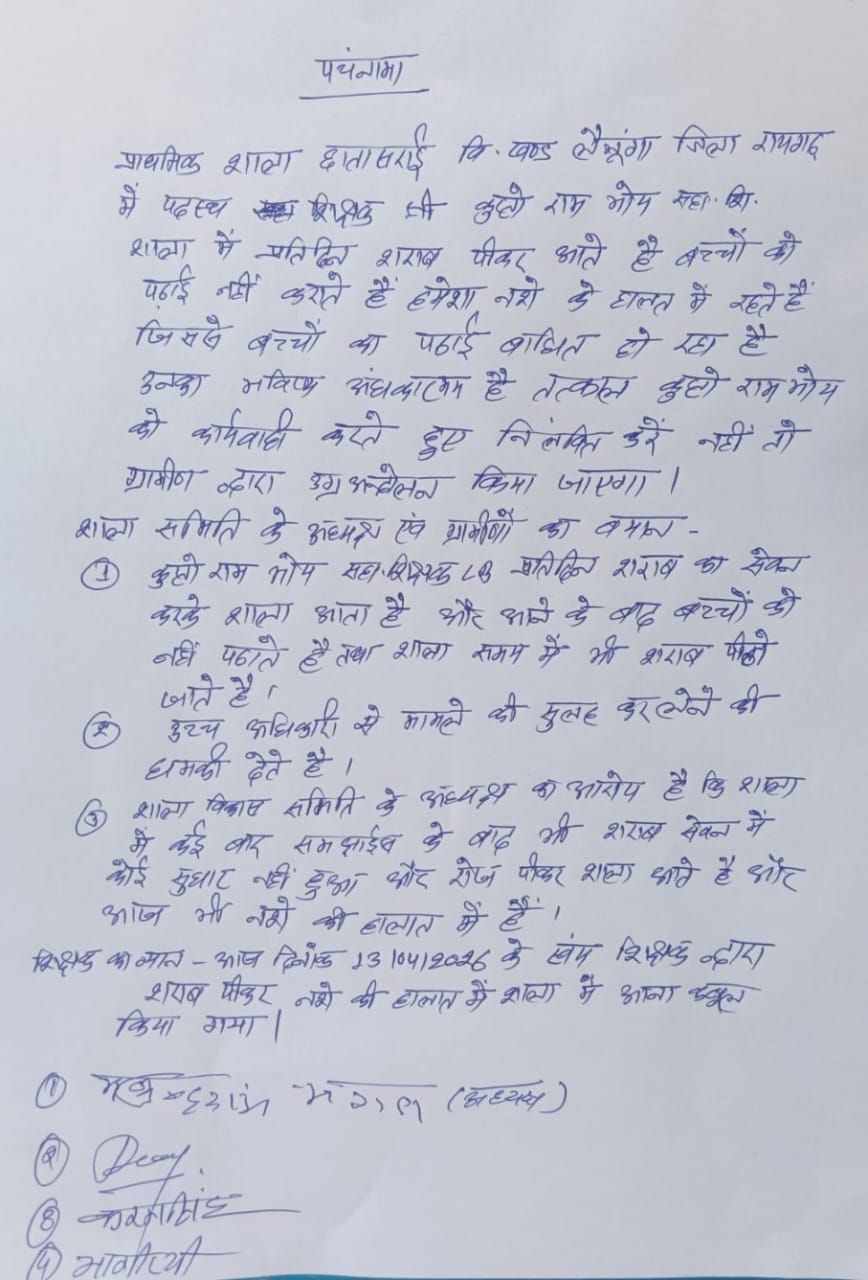 पचंनामा
प्राथमिक शाला हातासराई वि. खण्ड लैलूंगा जिला रायगढ
में पदस्थ शिक्षक श्री कुहो राम भोय सहा. शि.
शाला में प्रतिदिन शराब पीकर आते है बच्चों को
पढाई नहीं कराते हैं हमेशा नशे के हालत में रहते हैं
जिससे बच्चों का पढाई बाधित हो रहा है
उनका भविष्य अंधकारमय है तत्काल कुहो राम भोय
को कार्यवाही करते हुए निलंबित करें नहीं तो
ग्रामीण द्वारा उग्र अन्दोलन किया जाएगा।
शाला समिति के अध्यक्ष एवं ग्रामीणों का बयान -
① कुहो राम भोय सहा. शिक्षक LB प्रतिदिन शराब का सेवन
करके शाला आता है और आने के बाद बच्चों को
नहीं पढाते है तथा शाला समय में भी शराब पीने
जाते है।
② उच्च अधिकारी से मामले की सुलह कर लेने की
धमकी देते है।
③ शाला विकास समिति के अध्यक्ष का आरोप है कि शाला
में कई बार समझाईस के बाद भी शराब सेवन में
कोई सुधार नहीं हुआ और रोज पीकर शाला आते है और
आज भी नशे की हालात में हैं।
शिक्षक का ब्यान - आज दिनाँक 13/04/2026 के स्वंय शिक्षक द्वारा
शराब पीकर नशे की हालात में शाला में आना कबूल
किया गया।
① (अध्यक्ष)
②
③ करमसिंह
④ भागीरथी